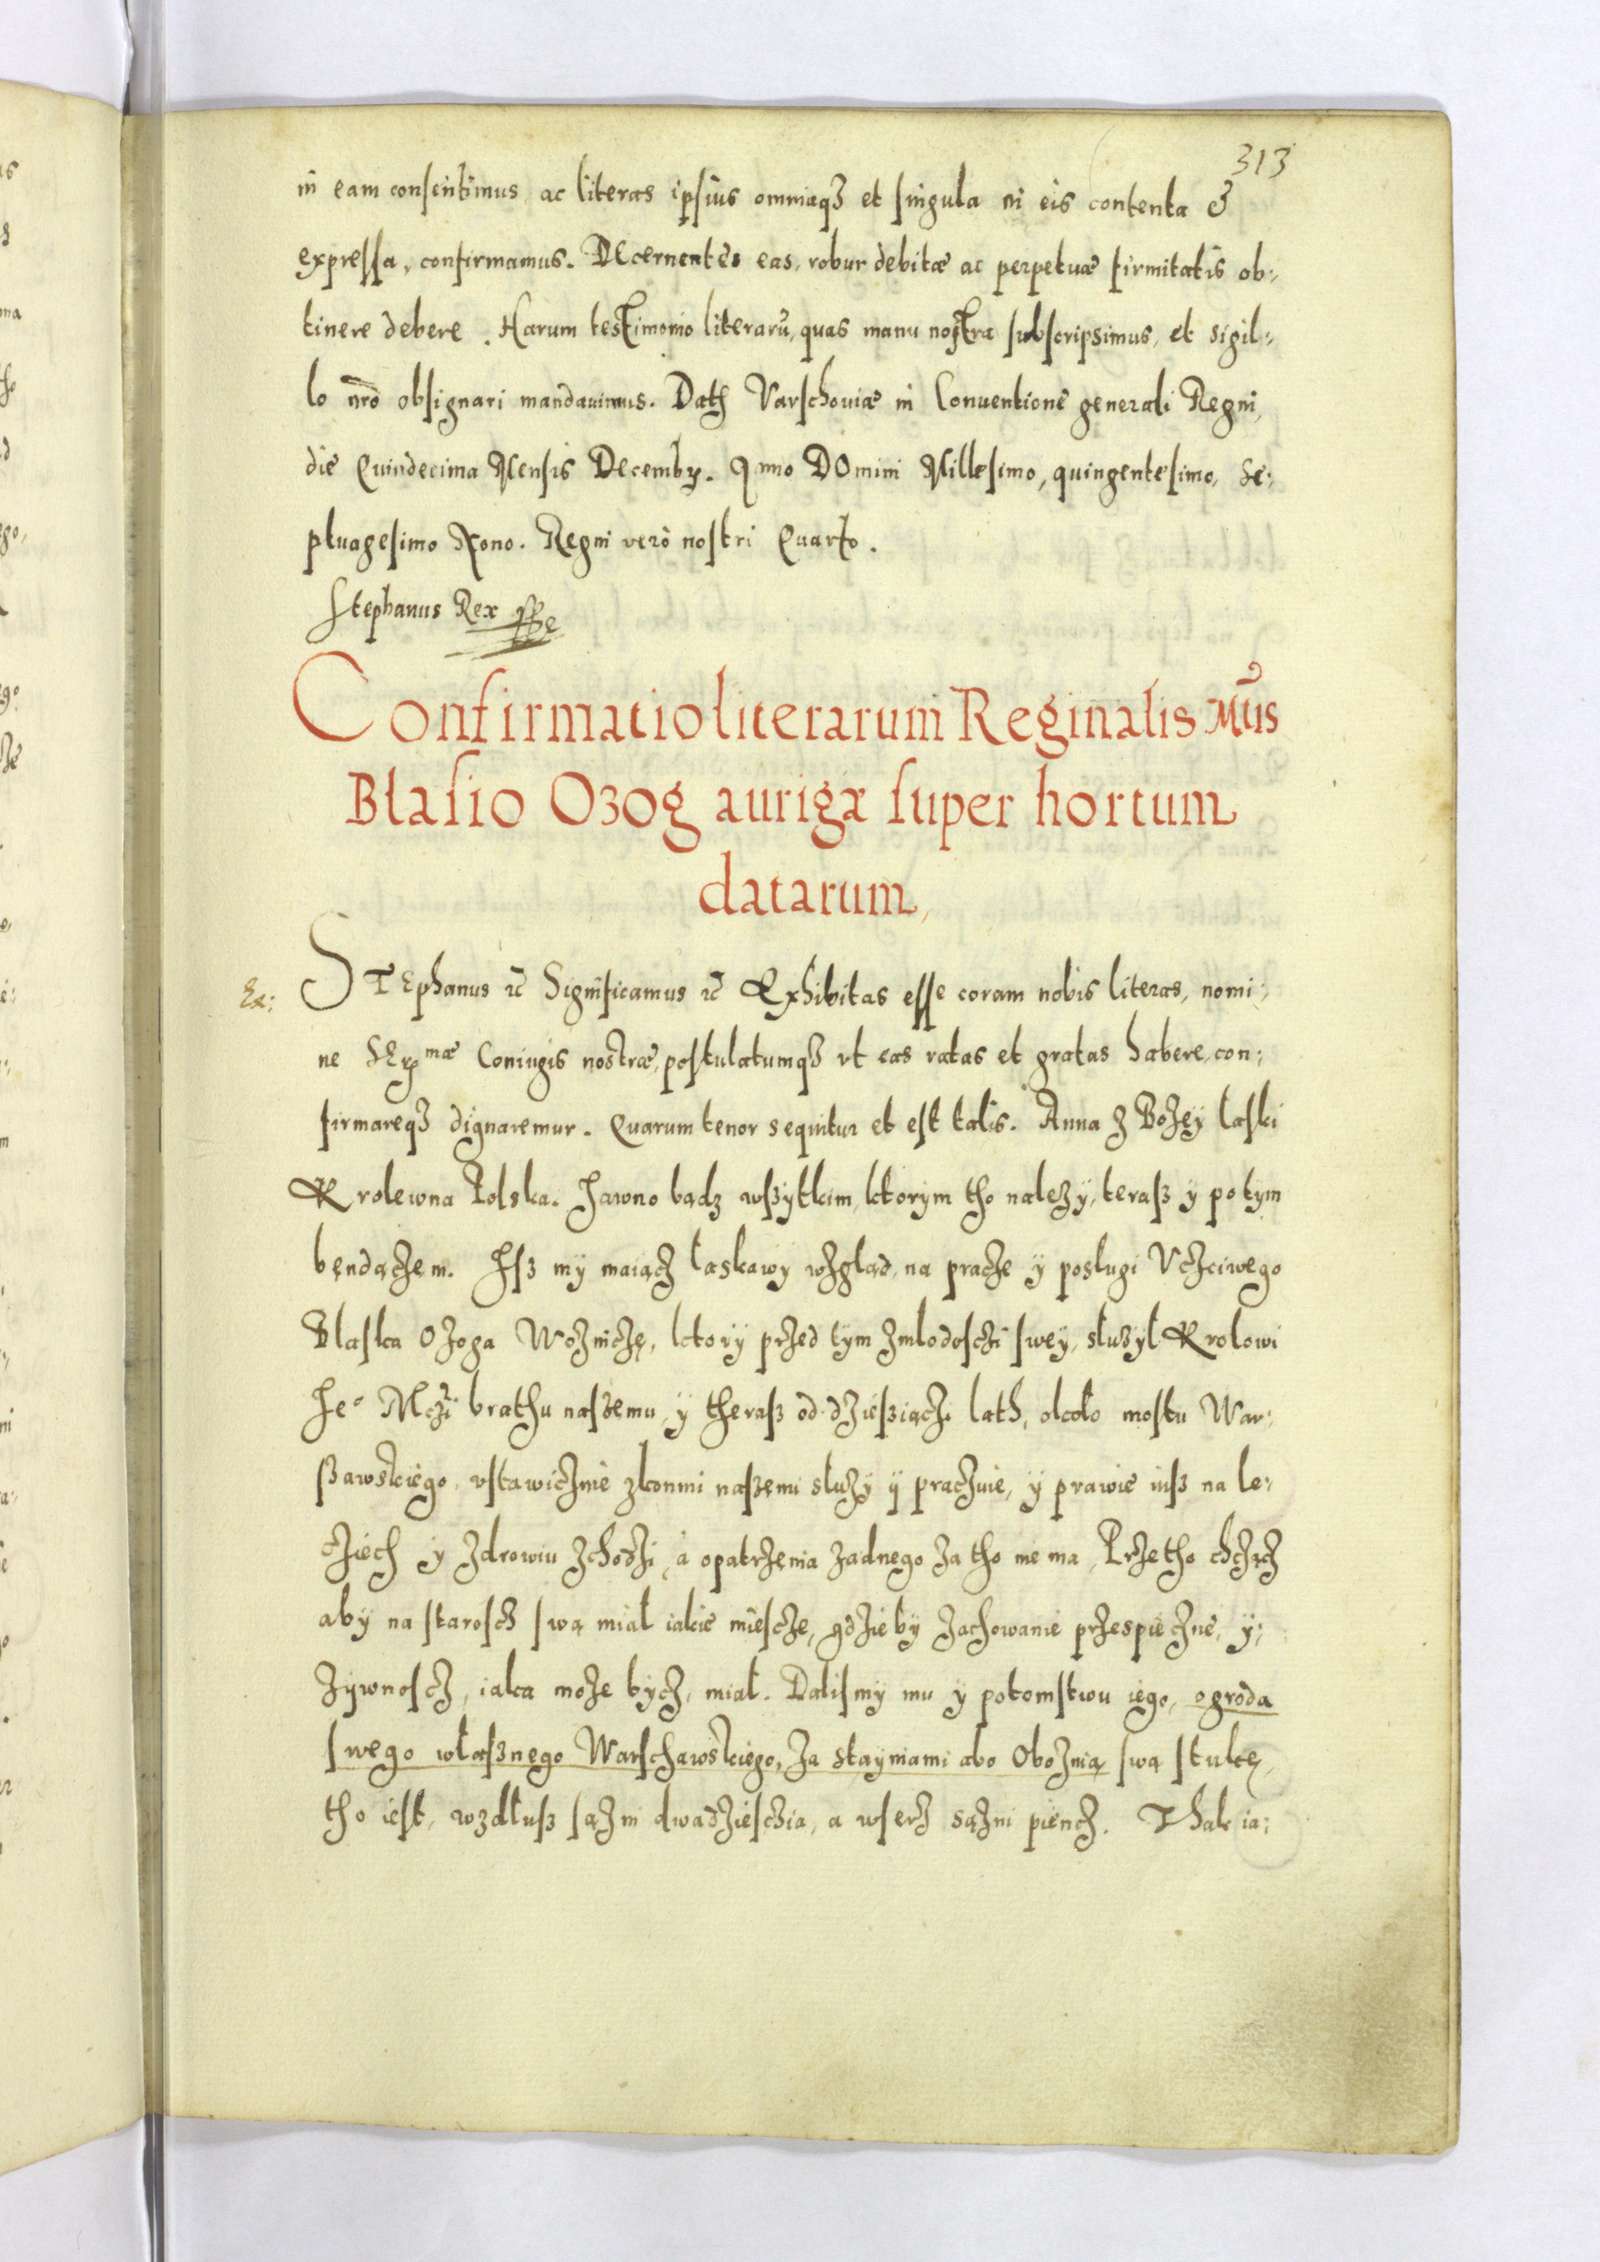 313
in eam consentimus ac literas ipsius omniaqз et singula in eis contenta &
expressa, confirmamus. Decernentes eas, robur debitæ ac perpetuæ firmitatis ob:
tinere debere. Harum testimonio literarũ, quas manu nostra subscripsimus, et sigil:
lo nrõ obsignari mandauimus. Dath Varschouiæ in Conuentione generali Regni,
die Quindecima Mensis Decembr. Anno DOmini Millesimo, quingentesimo, Se:
ptuagesimo Nono. Regni verò nostri Quarto.
Stephanus Rex
Confirmatio literarum Reginalis Mtis
Blasio Ozog aurigæ super hortum
datarum,
Ex:
STEphanus etc Significamus etc Exhibitas esse coram nobis literas, nomi:
ne SEr mæ Coniugis nostræ, postulatumqз vt eas ratas et gratas habere, con:
firmareqз dignaremur. Quarum tenor sequitur et est talis. Anna z Bozey laski
Krolewna Polska. Jawno bądz wszytkim, ktorym tho nalezy, terasz y potym
bęndączem. Jsz my maiącz łaskawy wzgląd, na pracze y posługi Vczciwego
Blaska Ozoga Wozniczę, ktory przed tym zmlodosczi swey, służył Krolowi
Jeº Mczi brathu naszemu, y therasz od dziesziączi lath, około mostu War:
szawskiego, vstawicznie zkonmi naszemi słuzy y pracznie, y prawie iusz na le:
cziech y zdrowiu zchodzi, a opatrzenia zadnego za tho nie ma, Przetho chcząc
aby na starosć swą miał iakie miescze, gdzieby zachowanie przespieczne, y:
zywnoscz, iaka moze bycz, miał. Dalismy mu y potomstwu iego, ogroda
swego własznego Warschawskiego, za stayniami abo Oboznią swą stukę,
tho iest, wzdłusz sązni dwadziesczia, a wserz sązni piencz. Thak ia: